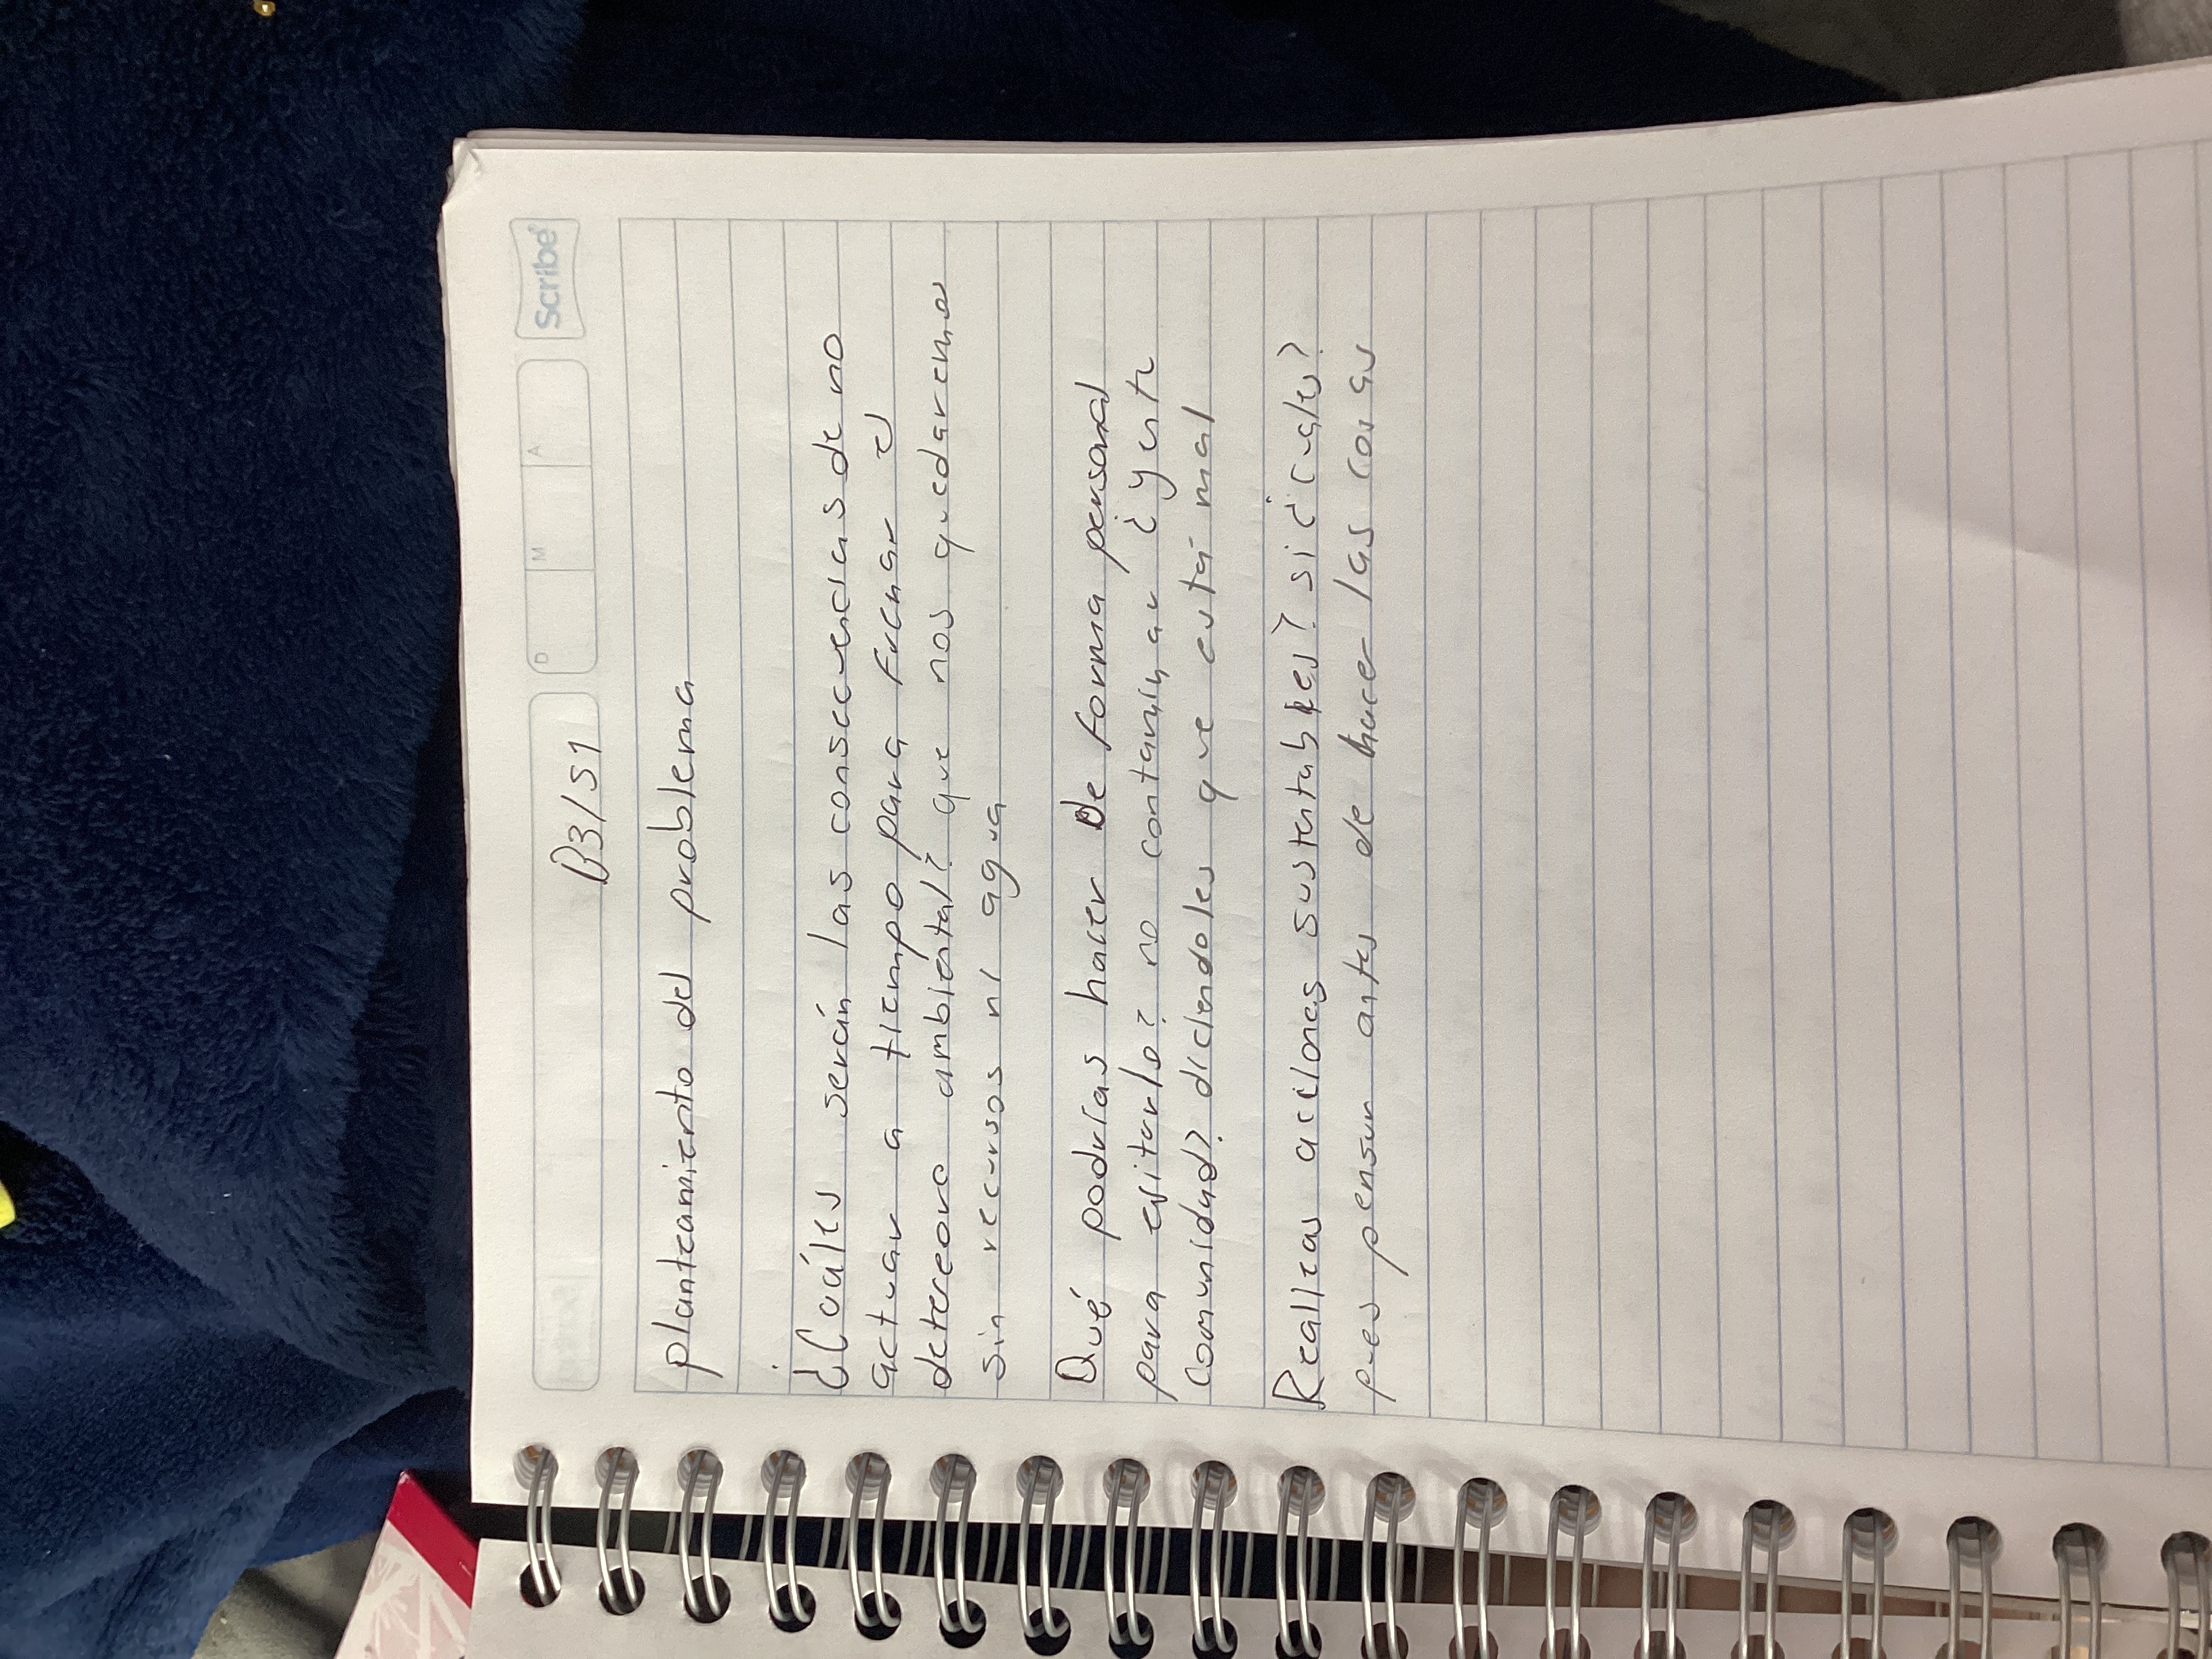 B3/S1
D M A
Scribe
planteamiento del problema
¿Cuáles serán las consecuencias de no
actuar a tiempo para frenar el
detereoro ambiental? que nos quedaremos
sin recursos ni agua
Qué podrías hacer De forma personal
para evitarlo? no contaminar ¿y en tu
comunidad? diciendoles que está mal
Realizas acciones sustentables? si ¿cuales?
pues pensar antes de hacer las cosas